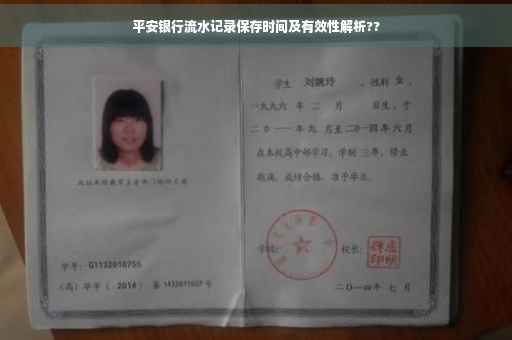 平安银行流水记录保存时间及有效性解析??
学生 刘婉玲 ,性别 女 ,
一九九六 年 二 月 日生,于
二〇一一 年 九 月至 二〇一四 年 六 月
在本校高中部学习,学制 三 年,修业
期满,成绩合格,准予毕业。
学校: 校长:
二〇一四 年 七 月
学号: G1132010755
(高)毕字( 2014 )第 1432011027 号